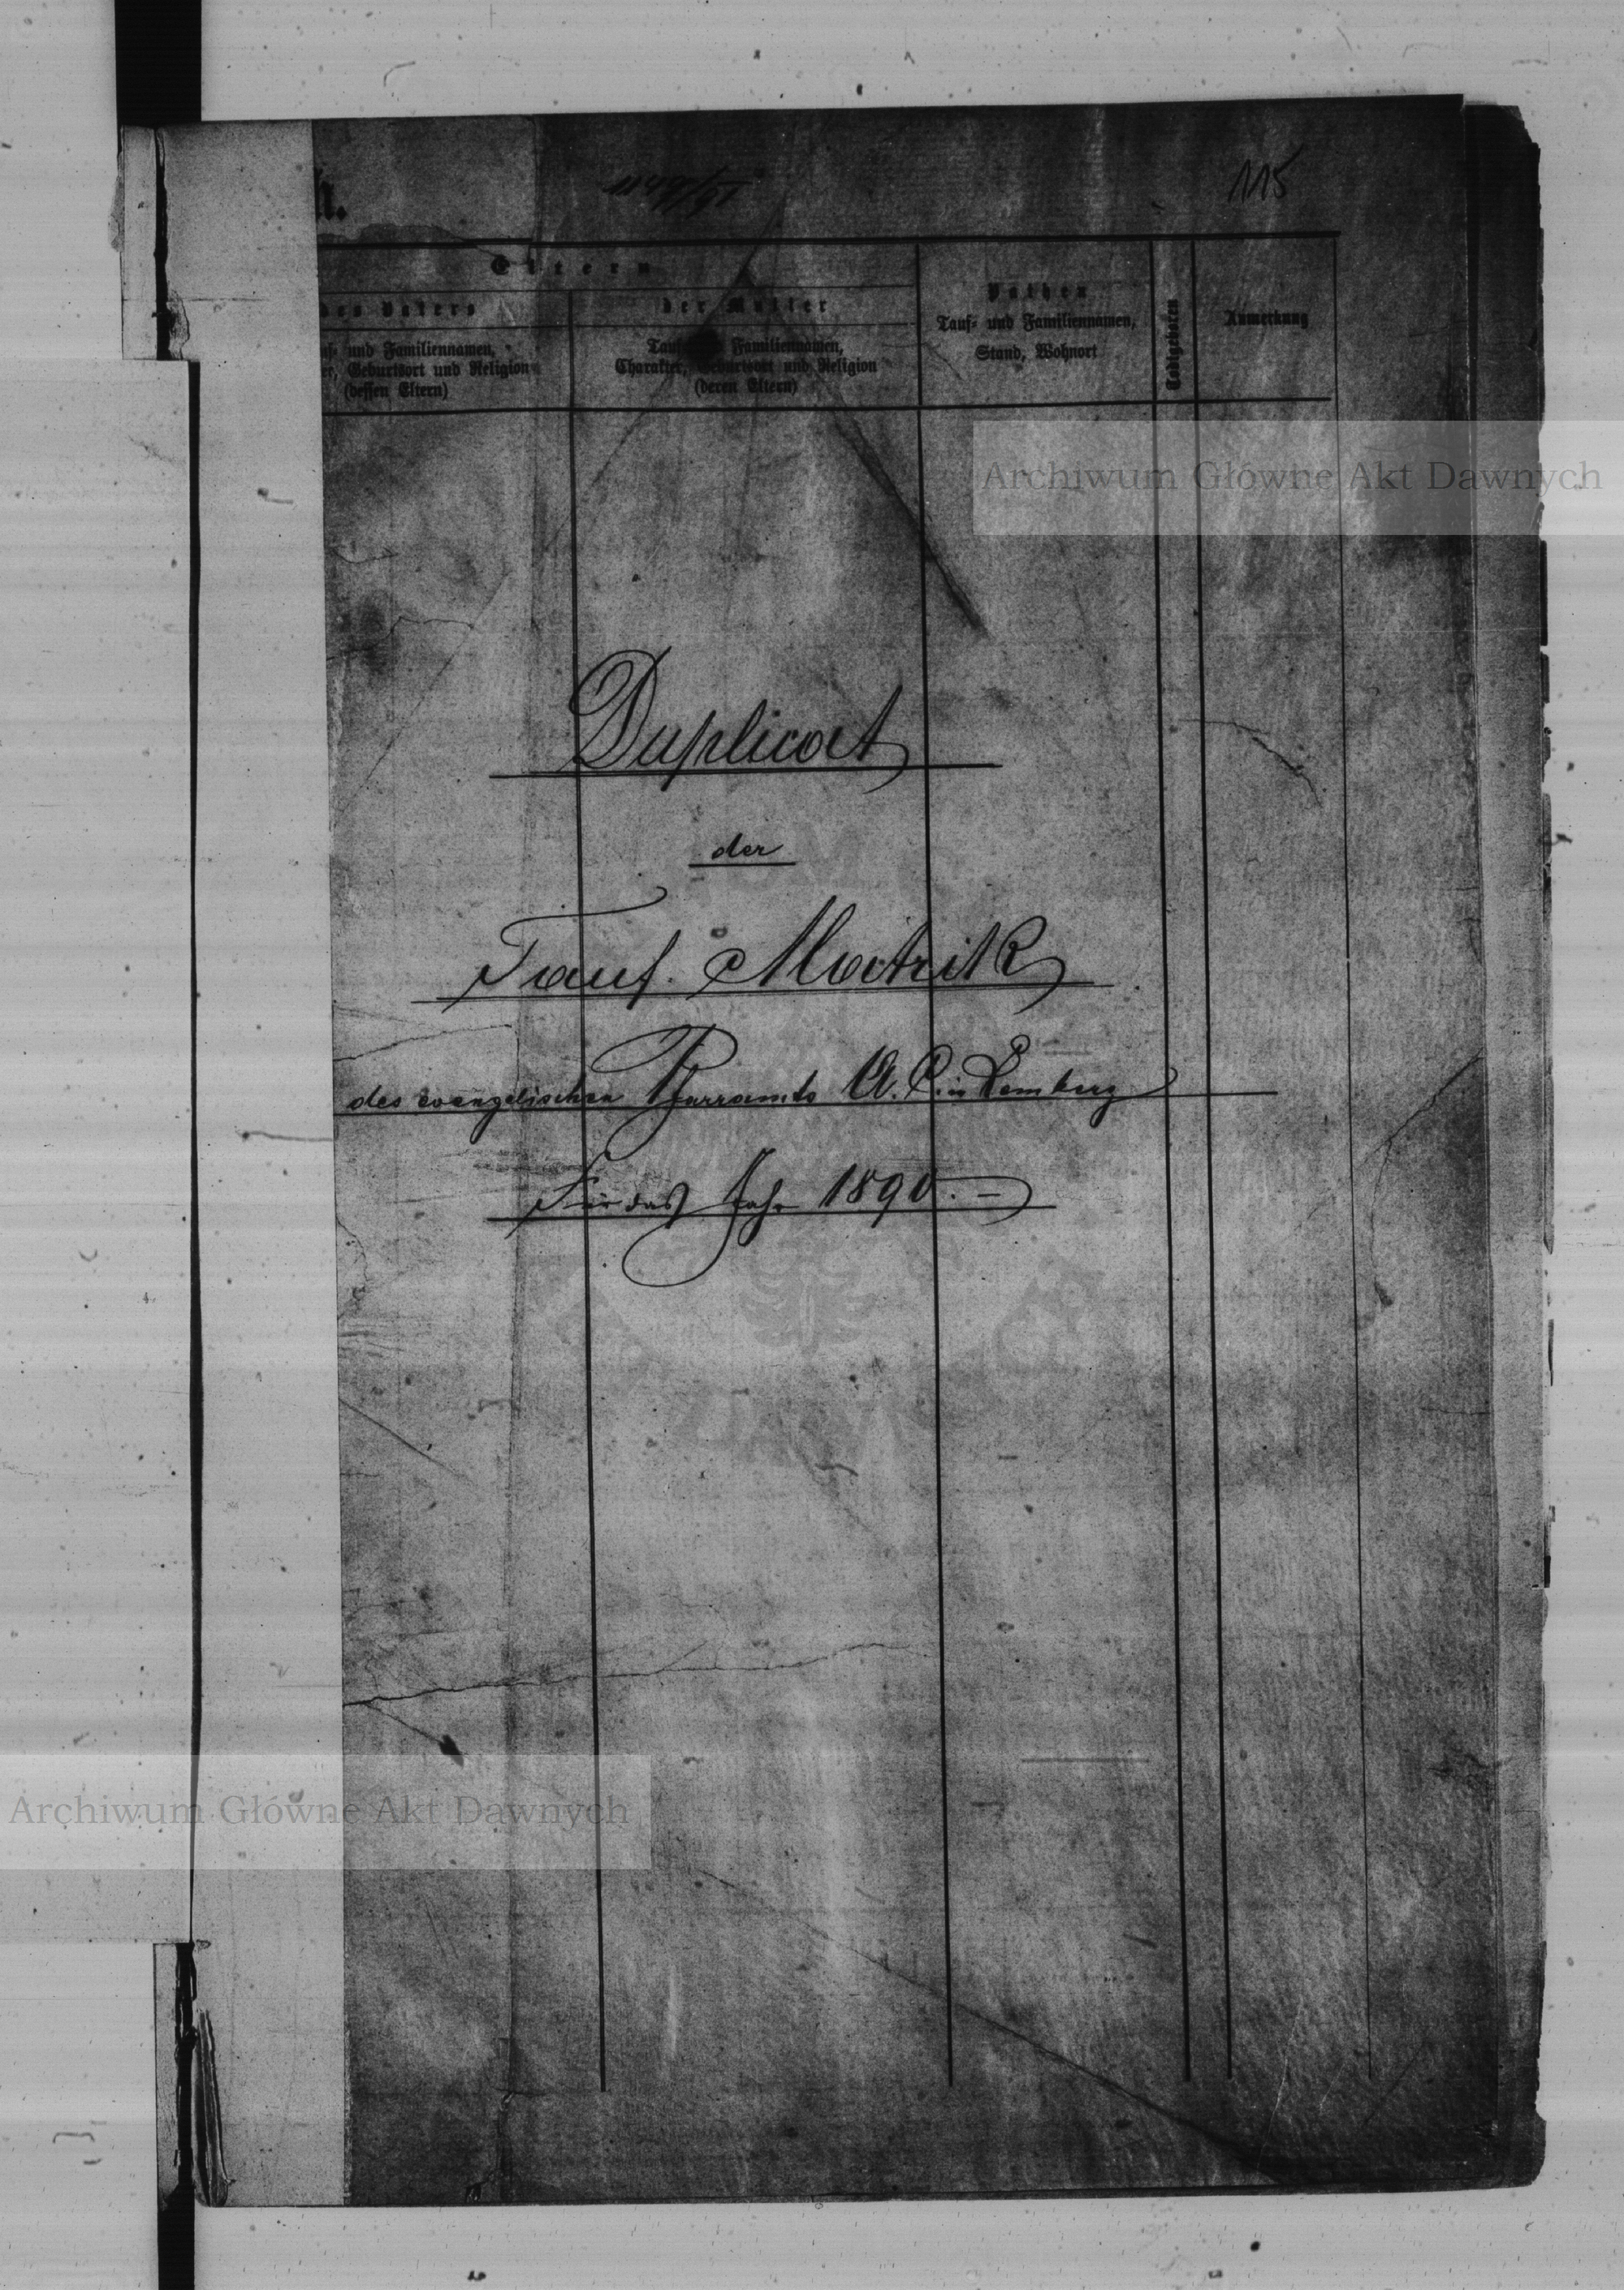 115
Eltern
des Vaters
der Mutter
Pathen
Tauf= und Familiennamen,
Stand, Wohnort
Todtgeboren
Anmerkung
und Familiennamen,
Geburtsort und Religion
(dessen Eltern)
Familiennamen,
Charakter, Geburtsort und Religion
(deren Eltern)
Archiwum Główne Akt Dawnych
Duplicat
der
Tauf. Matrik
des evangelischen Pfarramts A. C. in Lemberg
Für das Jahr 1890. –
Archiwum Główne Akt Dawnych